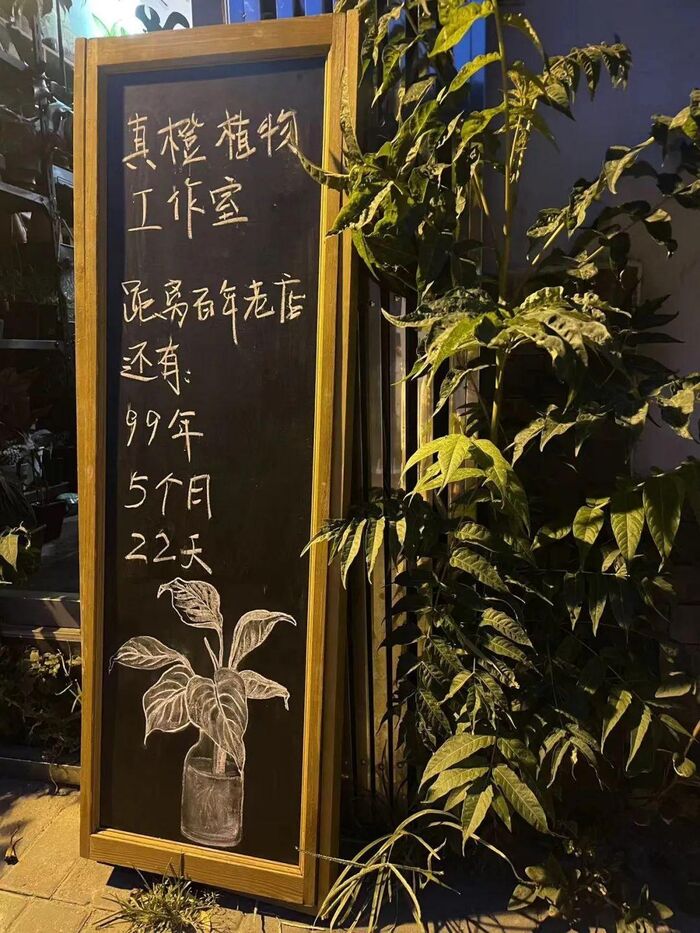 真橙植物
工作室
距离百年老店
还有：
99年
5个月
22天